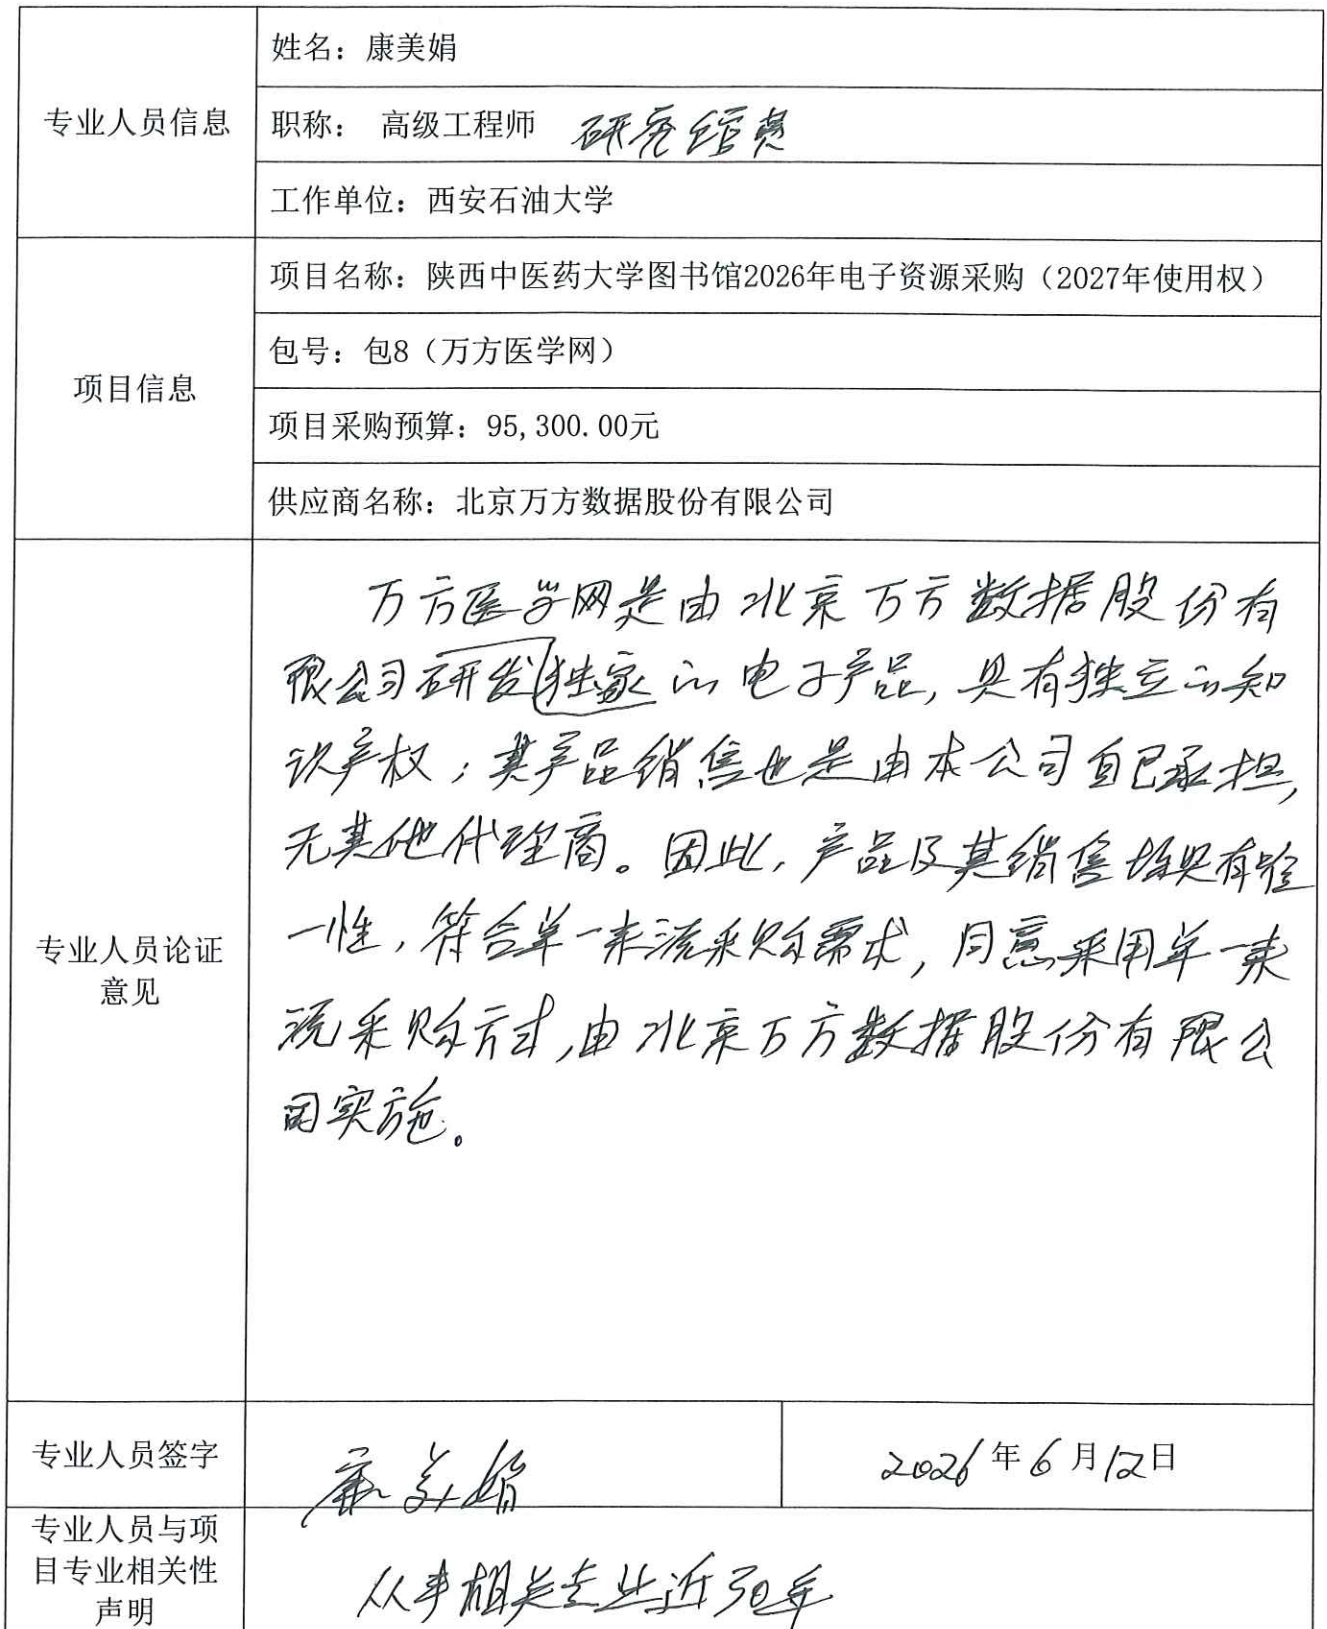 专业人员信息
姓名：康美娟
职称： 高级工程师 研究馆员
工作单位：西安石油大学
项目信息
项目名称：陕西中医药大学图书馆2026年电子资源采购（2027年使用权）
包号：包8（万方医学网）
项目采购预算：95,300.00元
供应商名称：北京万方数据股份有限公司
专业人员论证
意见
万方医学网是由北京万方数据股份有
限公司研发独家的电子产品，具有独立的知
识产权；其产品销售也是由本公司自己承担，
无其他代理商。因此，产品及其销售均具有唯
一性，符合单一来源采购需求，同意采用单一来
源采购方式，由北京万方数据股份有限公
司实施。
专业人员签字
康美娟
2026年6月12日
专业人员与项
目专业相关性
声明
从事相关专业近30年